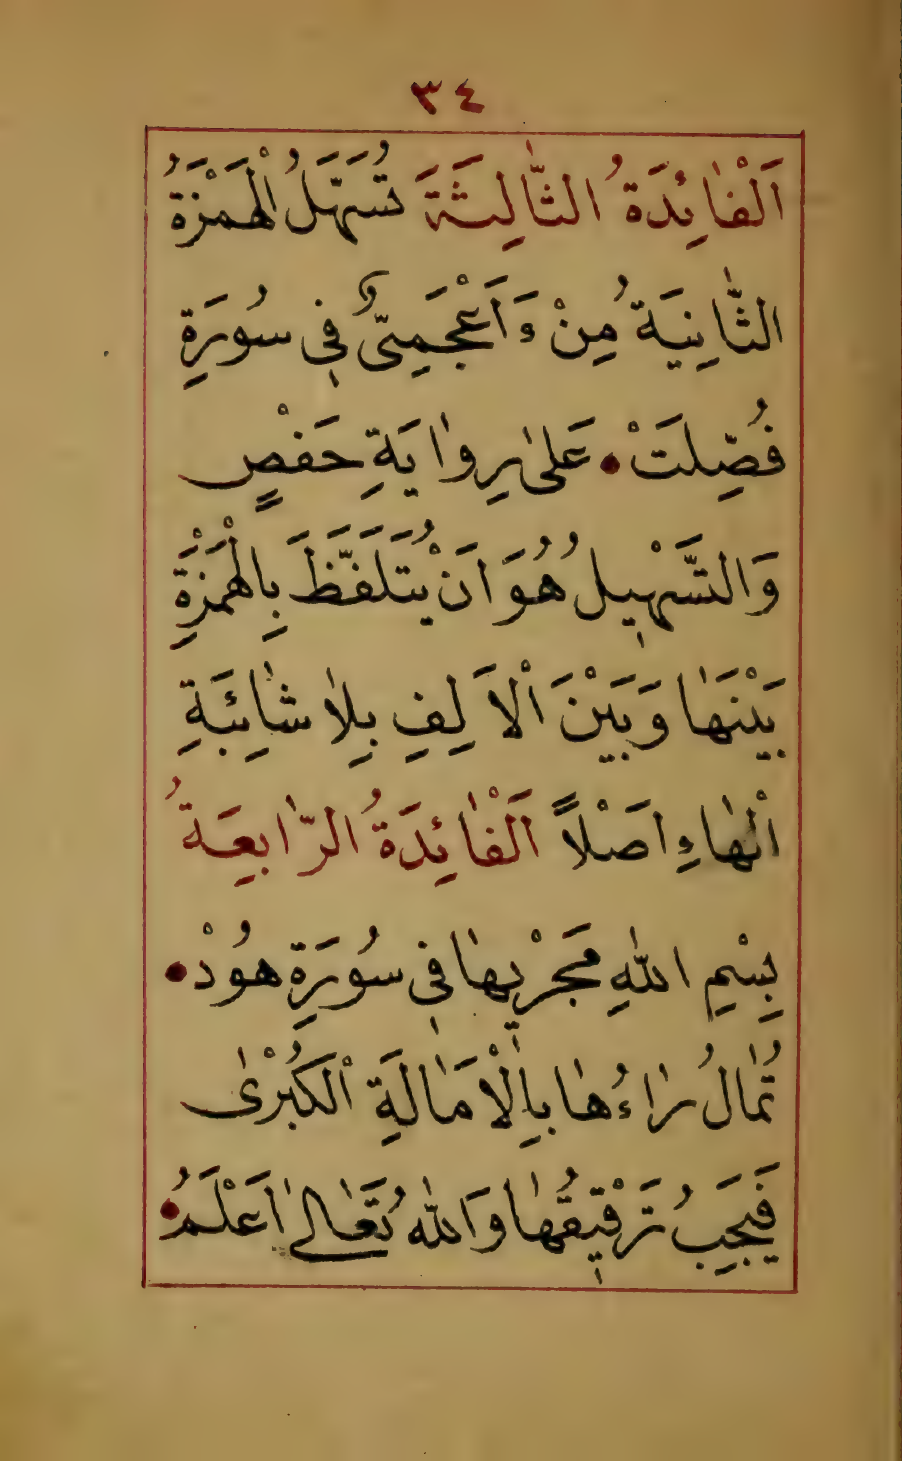 ٣٤
اَلْفَائِدَةُ الثَّالِثَةَ تُسَهَّلُ الْهَمْزَةُ
الثَّانِيَةُ مِنْ ءَاَعْجَمِىٌّ فِى سُورَةِ
فُصِّلَتْ • عَلٰى رِوَايَةِ حَفْصٍ
وَالتَّسْهِيلُ هُوَ اَنْ يُتَلَفَّظَ بِالْهَمْزَةِ
بَيْنَهَا وَبَيْنَ الْاَلِفِ بِلَا شَائِبَةِ
الْهَاءِ اَصْلًا اَلْفَائِدَةُ الرَّابِعَةُ
بِسْمِ اللّٰهِ مَجْرٰيهَا فِى سُورَةِ هُودْ •
تُمَالُ رَاءُهَا بِالْاِمَالَةِ الْكُبْرٰى
فَيَجِبُ تَرْقِيقُهَا وَاللّٰهُ تَعَالٰى اَعْلَمُ •